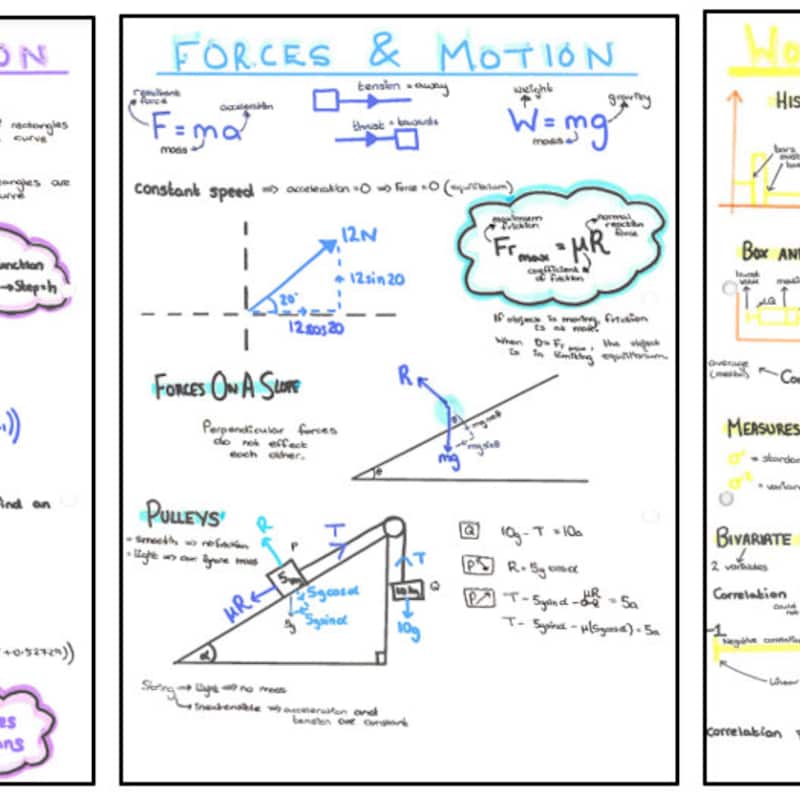 ON
rectangles
curve
are
curve
Function
→ Step = h
))
find an
+0.52729))
es
ns
FORCES & MOTION
resultant force
acceleration
F = ma
mass
tension = away
thrust = towards
weight
gravity
W = mg
mass
constant speed => acceleration = 0 => Force = 0 (equilibrium)
12N
12sin20
20°
12cos20
maximum friction
normal reaction force
Fr max = μR
coefficient of friction
If object is moving, friction
is at max.
When D = Fr max, the object
is in limiting equilibrium
FORCES ON A SLOPE
Perpendicular forces
do not effect
each other.
R
θ
mgcosθ
mgsinθ
mg
θ
PULLEYS
- smooth => no friction
- light => can ignore mass
R
P
T
T
5m
μR
5gcosα
5gsinα
5g
Q
10g
α
Q 10g - T = 10a
P R = 5gcosα
P T - 5gsinα - μR = 5a
T - 5gsinα - μ(5gcosα) = 5a
String → light => no mass
→ Inextensible => acceleration and
tension are constant
HIS
bars
BOX AN
lowest
average
(mean)
Co
MEASURES
σ = standar
σ² = varian
BIVARIATE
2 variables
Correlation
could
not
-1
Negative correlation
Linear
correlation